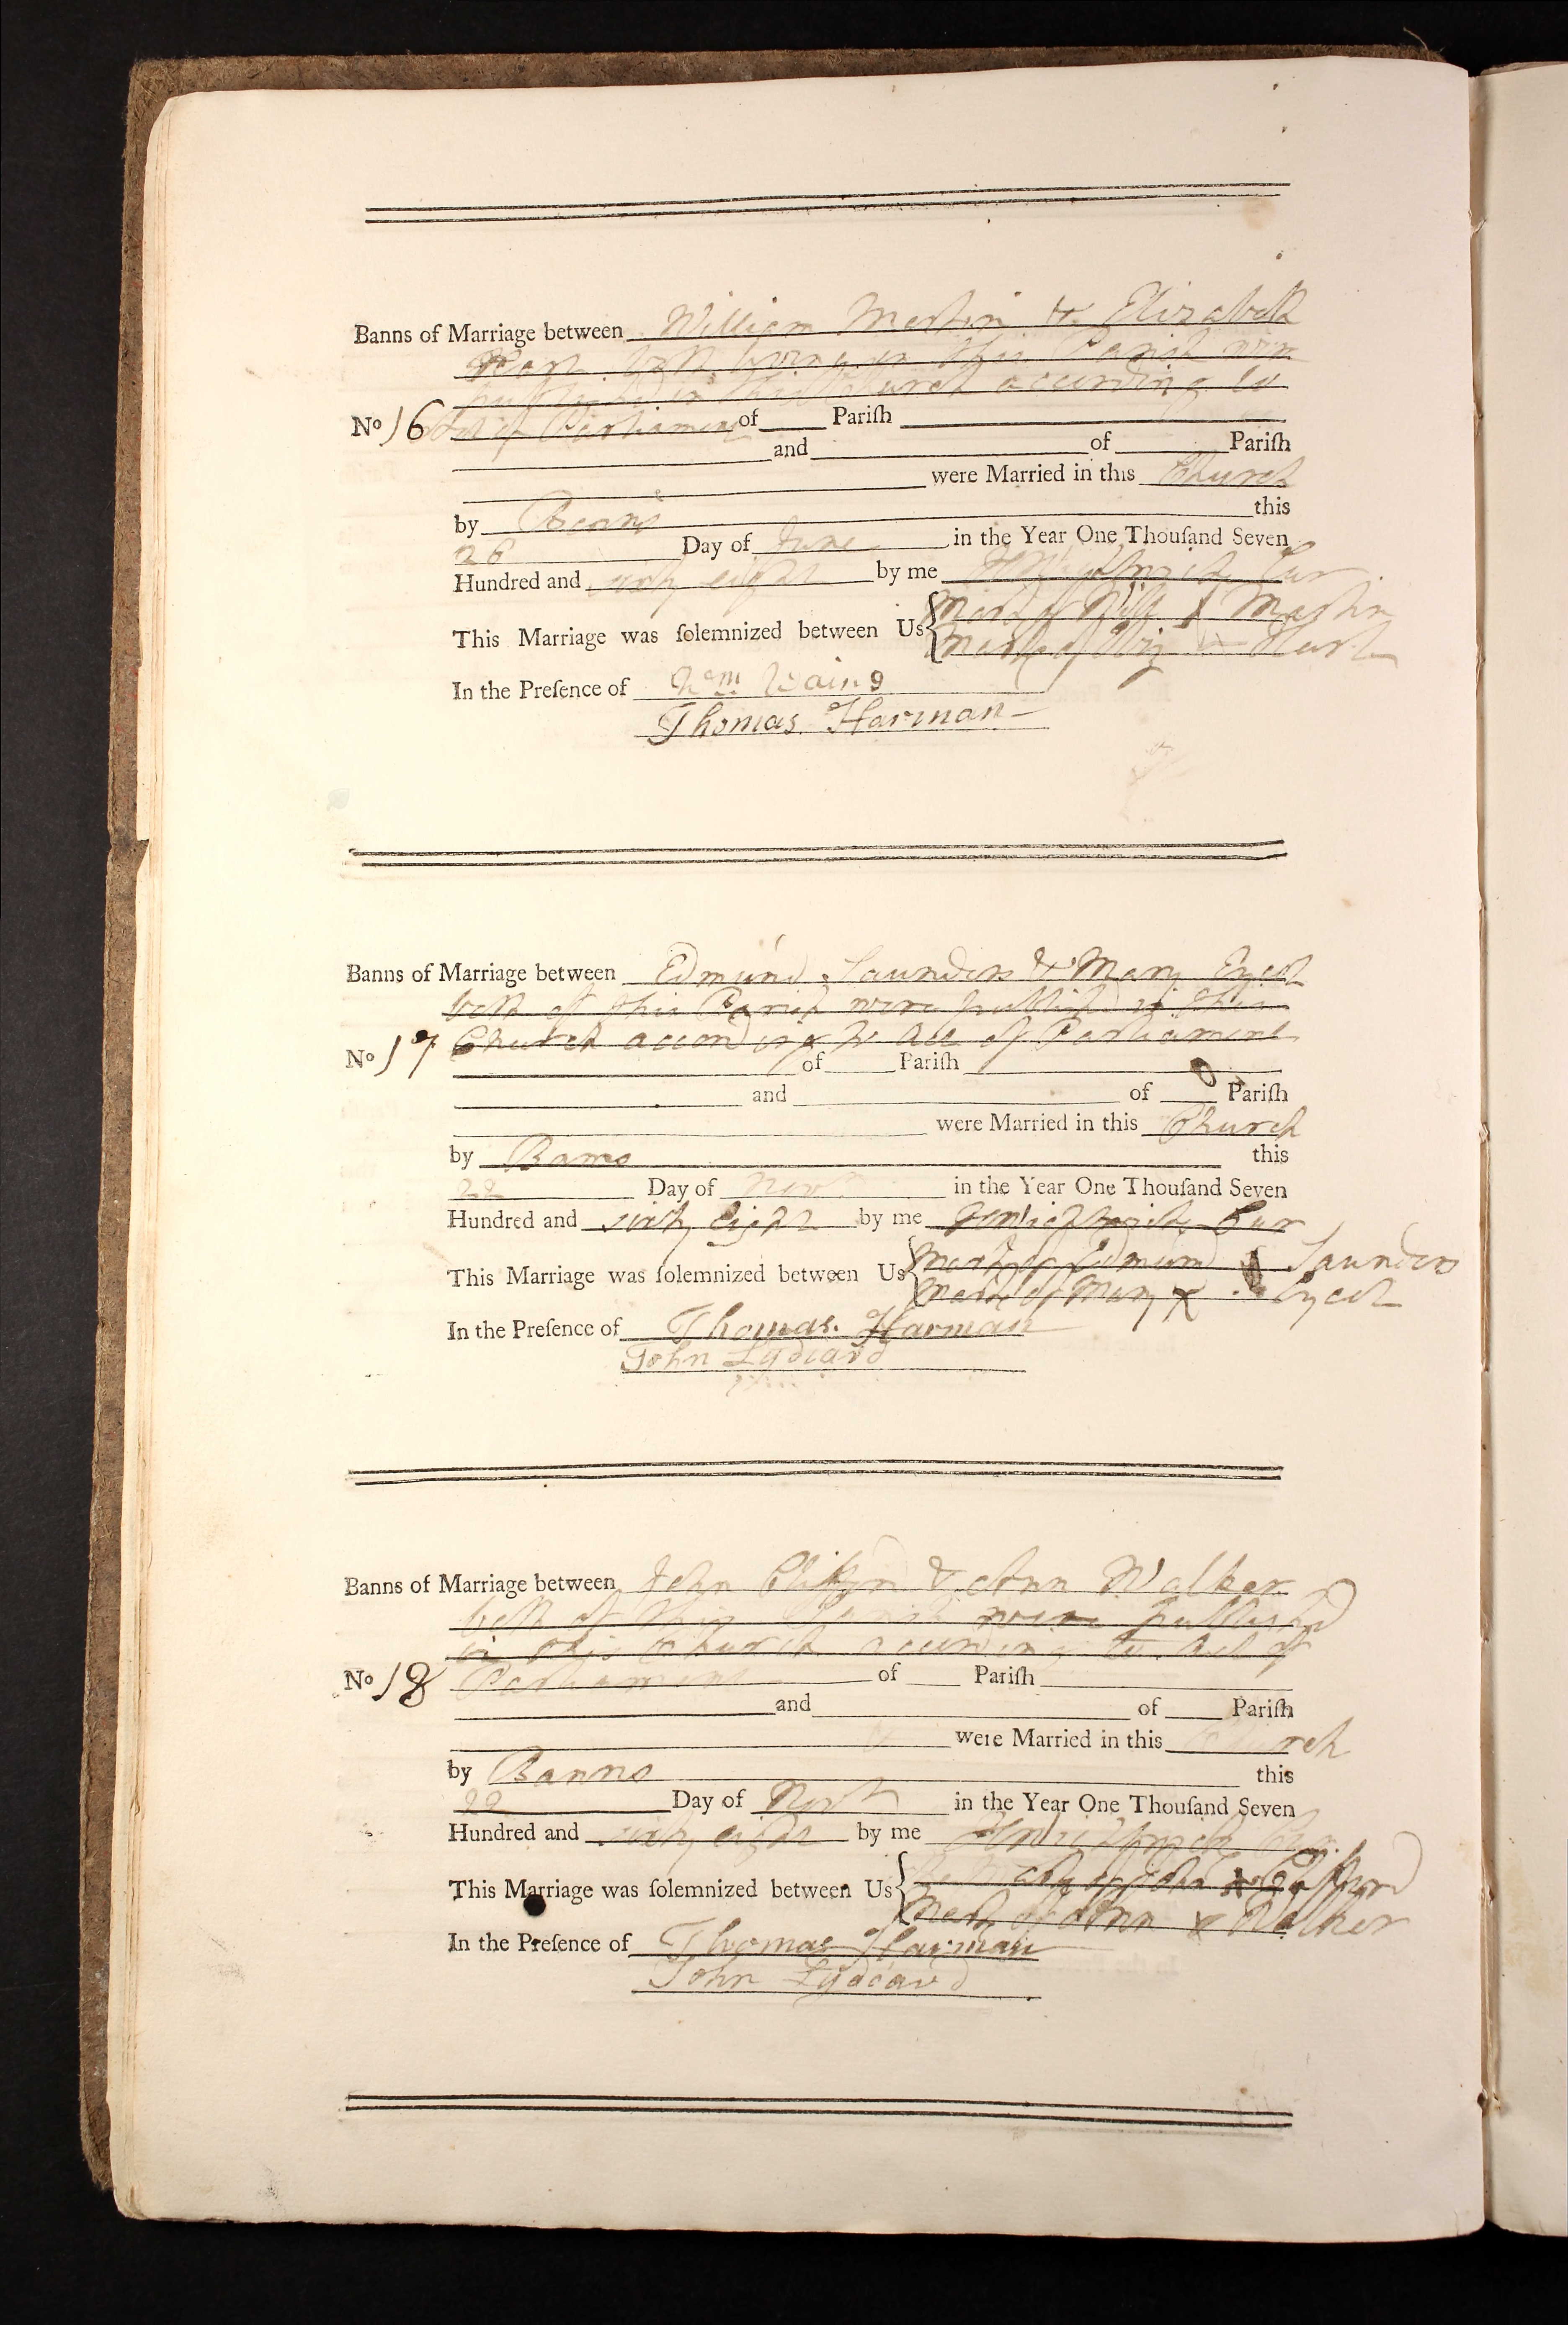 Banns of Marriage between William Martin & Elizabeth
Hart both living in this Parish were
published in this Church according to
No 16 Act of Parliament of Pariſh
and of Pariſh
were Married in this Church
by Banns this
26 Day of June in the Year One Thouſand Seven
Hundred and sixty eight by me Cur
This Marriage was ſolemnized between Us Mark of Will Martin
Mark of Eliz Hart
In the Preſence of Wm
Thomas Harman
Banns of Marriage between Edmund Saunders & Mary Eycot
both of this Parish were publish'd in this
Church according to Act of Parliament
No 17 of Pariſh
and of Pariſh
were Married in this Church
by Banns this
22 Day of Novr in the Year One Thouſand Seven
Hundred and sixty eight by me Cur
This Marriage was ſolemnized between Us Mark of Edmund Saunders
Mark of Mary X Eycot
In the Preſence of Thomas Harman
John Lydiard
Banns of Marriage between John & Ann Walker
both of this Parish were publish'd
in this Church according to Act of
No 18 Parliament of Pariſh
and of Pariſh
were Married in this Church
by Banns this
22 Day of in the Year One Thouſand Seven
Hundred and sixty eight by me
This Marriage was ſolemnized between Us Mark of John X
Mark of Ann X Walker
In the Preſence of Thomas Harman
John Lydiard